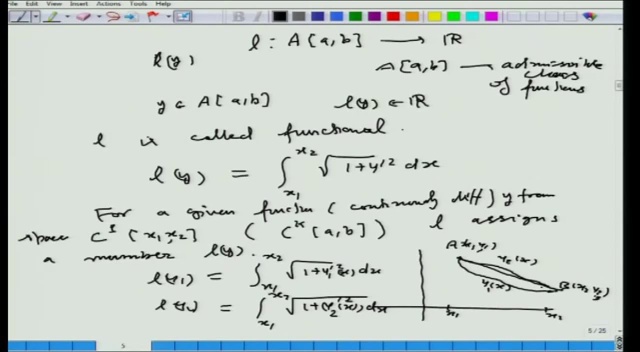 File Edit View Insert Actions Tools Help
l : A[a,b] ⟶ ℝ
l(y)
A[a,b] — admissible class of functions
y ∈ A[a,b]   l(y) ∈ ℝ
l is called functional.
l(y) = ∫_{x₁}^{x₂} √(1+y'²) dx
For a given function (continuously diff) y from
space C¹[x₁,x₂] ( [a,b] ) l assigns
a number l(y).
l(y₁) = ∫_{x₁}^{x₂} √(1+y₁'²(x)) dx
l(y₂) = ∫_{x₁}^{x₂} √(1+(y₂'²(x)) dx
A(x₁,y₁)
y₂(x)
y₁(x)
B(x₂,y₂)
x₁ x₂
5 / 25
5